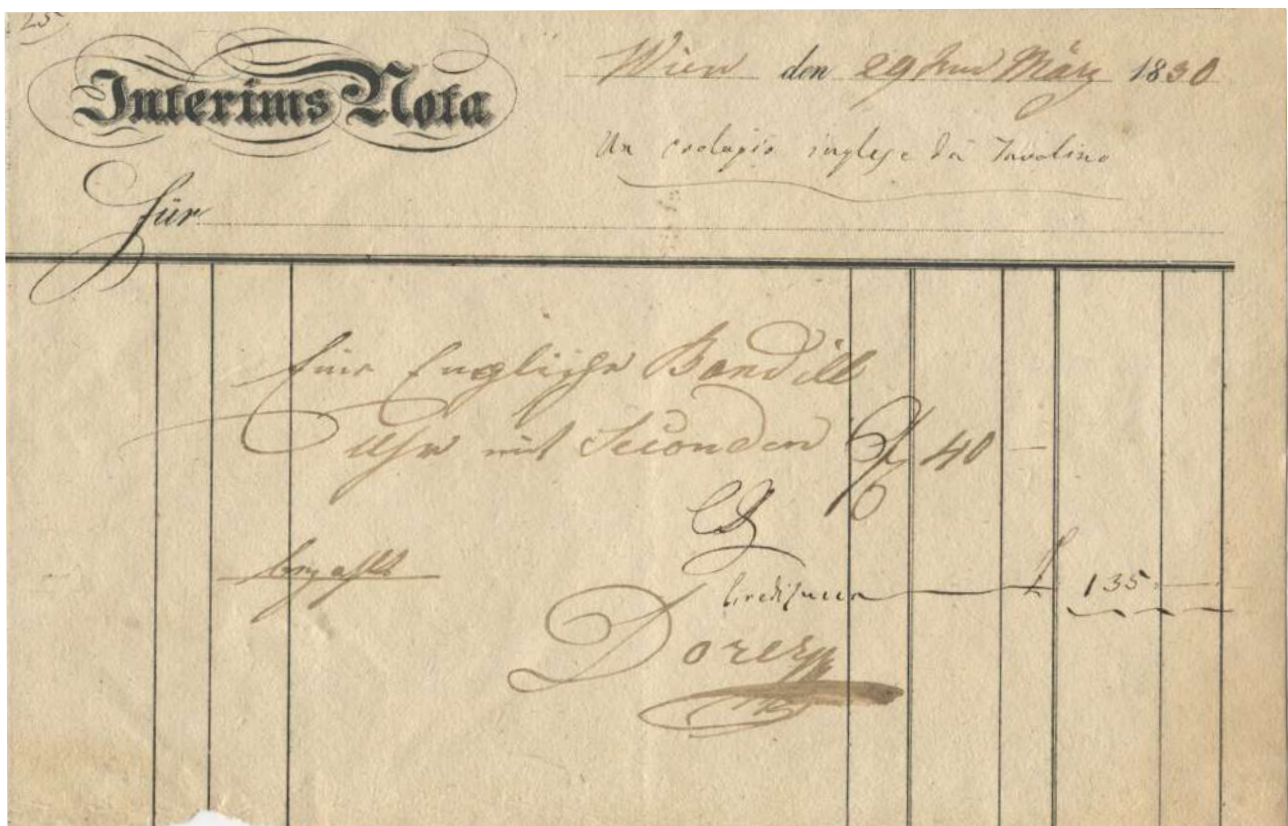 25
Interims Nota
Wien den 29ten März 1830
Un orologio inglese da Tavolino
für
Eine Englische Bendill
Uhr mit Seconden f 40 —
bezahlt
£ 135 —
Dorer